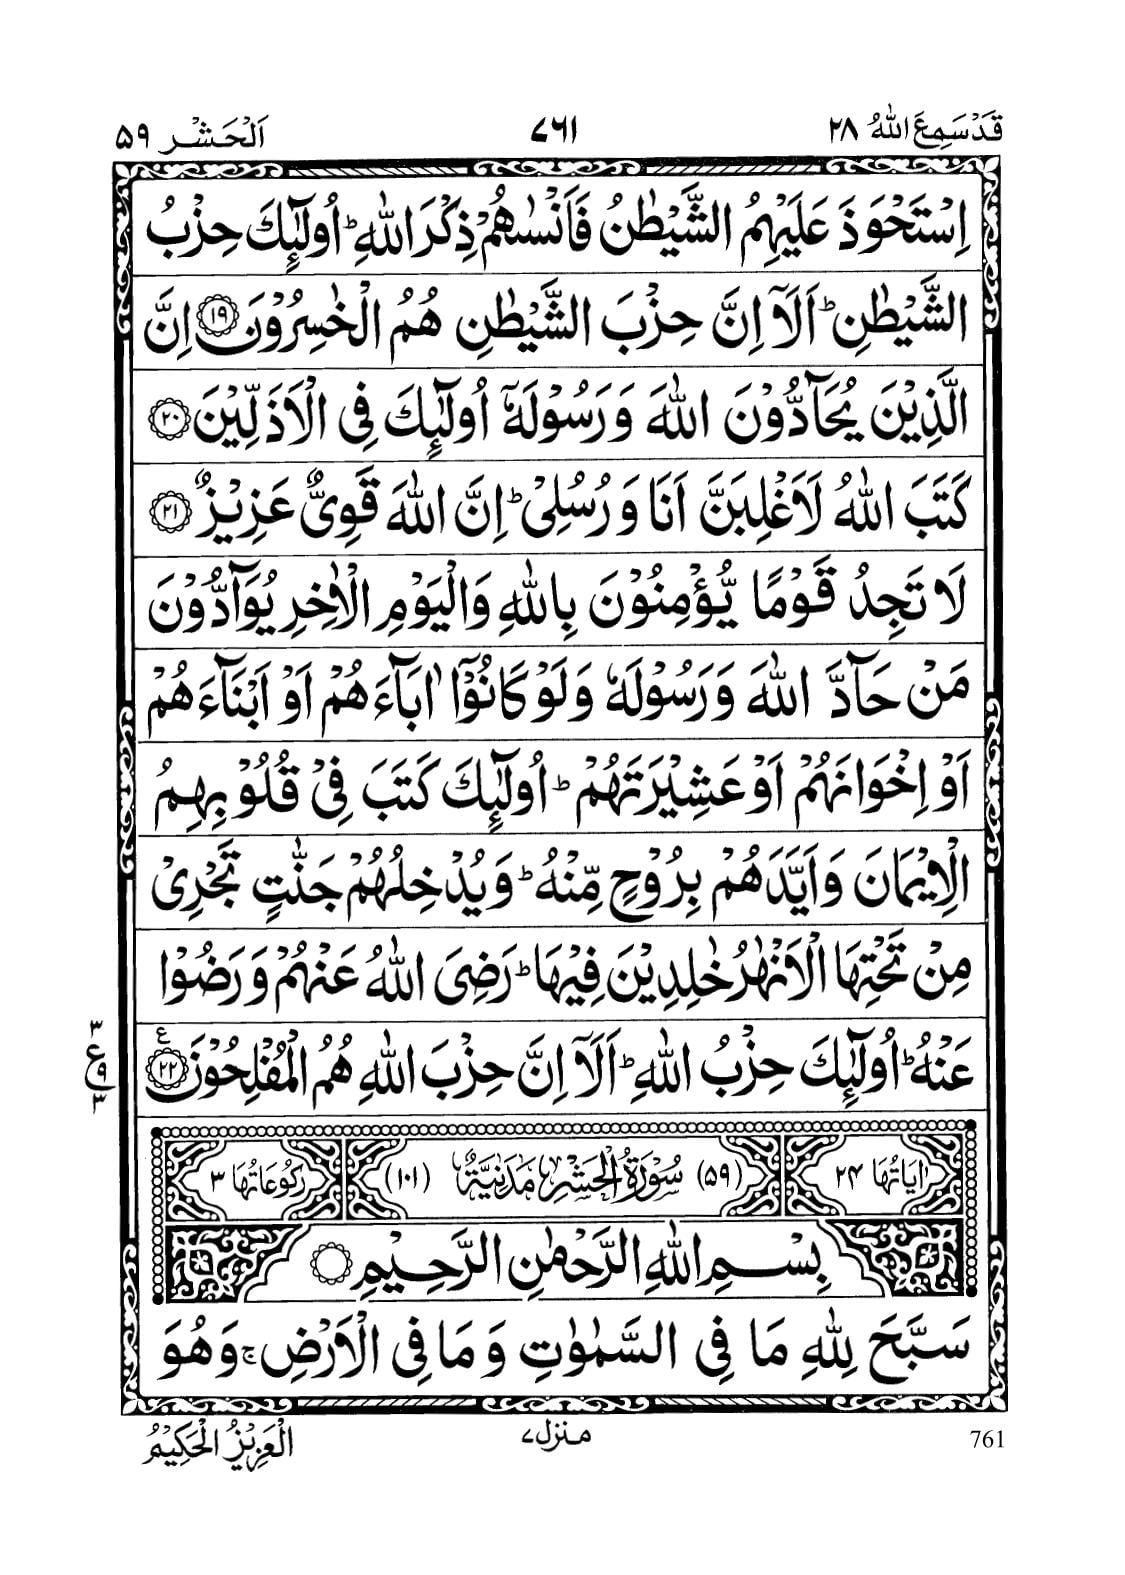 قَدْ سَمِعَ اللّٰهُ ۲۸ ۷۶۱ اَلْحَشْر ۵۹
اِسْتَحْوَذَ عَلَيْهِمُ الشَّيْطٰنُ فَاَنْسٰىهُمْ ذِكْرَ اللّٰهِ ؕ اُولٰٓئِكَ حِزْبُ
الشَّيْطٰنِ ؕ اَلَاۤ اِنَّ حِزْبَ الشَّيْطٰنِ هُمُ الْخٰسِرُوْنَ ۱۹ اِنَّ
الَّذِيْنَ يُحَآدُّوْنَ اللّٰهَ وَ رَسُوْلَهٗۤ اُولٰٓئِكَ فِى الْاَذَلِّيْنَ ۲۰
كَتَبَ اللّٰهُ لَاَغْلِبَنَّ اَنَا وَ رُسُلِىْ ؕ اِنَّ اللّٰهَ قَوِىٌّ عَزِيْزٌ ۲۱
لَا تَجِدُ قَوْمًا يُّؤْمِنُوْنَ بِاللّٰهِ وَالْيَوْمِ الْاٰخِرِ يُوَآدُّوْنَ
مَنْ حَآدَّ اللّٰهَ وَ رَسُوْلَهٗ وَ لَوْ كَانُوْۤا اٰبَآءَهُمْ اَوْ اَبْنَآءَهُمْ
اَوْ اِخْوَانَهُمْ اَوْ عَشِيْرَتَهُمْ ؕ اُولٰٓئِكَ كَتَبَ فِىْ قُلُوْبِهِمُ
الْاِيْمَانَ وَ اَيَّدَهُمْ بِرُوْحٍ مِّنْهُ ؕ وَ يُدْخِلُهُمْ جَنّٰتٍ تَجْرِىْ
مِنْ تَحْتِهَا الْاَنْهٰرُ خٰلِدِيْنَ فِيْهَا ؕ رَضِىَ اللّٰهُ عَنْهُمْ وَ رَضُوْا
عَنْهُ ؕ اُولٰٓئِكَ حِزْبُ اللّٰهِ ؕ اَلَاۤ اِنَّ حِزْبَ اللّٰهِ هُمُ الْمُفْلِحُوْنَ ۲۲ ع
۳
ع ۹
۳
اٰيَاتُهَا ۲۴ (۵۹) سُوْرَةُ الْحَشْرِ مَدَنِيَّةٌ (۱۰۱) رُكُوْعَاتُهَا ۳
بِسْمِ اللّٰهِ الرَّحْمٰنِ الرَّحِيْمِ
سَبَّحَ لِلّٰهِ مَا فِى السَّمٰوٰتِ وَ مَا فِى الْاَرْضِ ۚ وَهُوَ
الْعَزِيْزُ الْحَكِيْمُ
منزل ۷
761